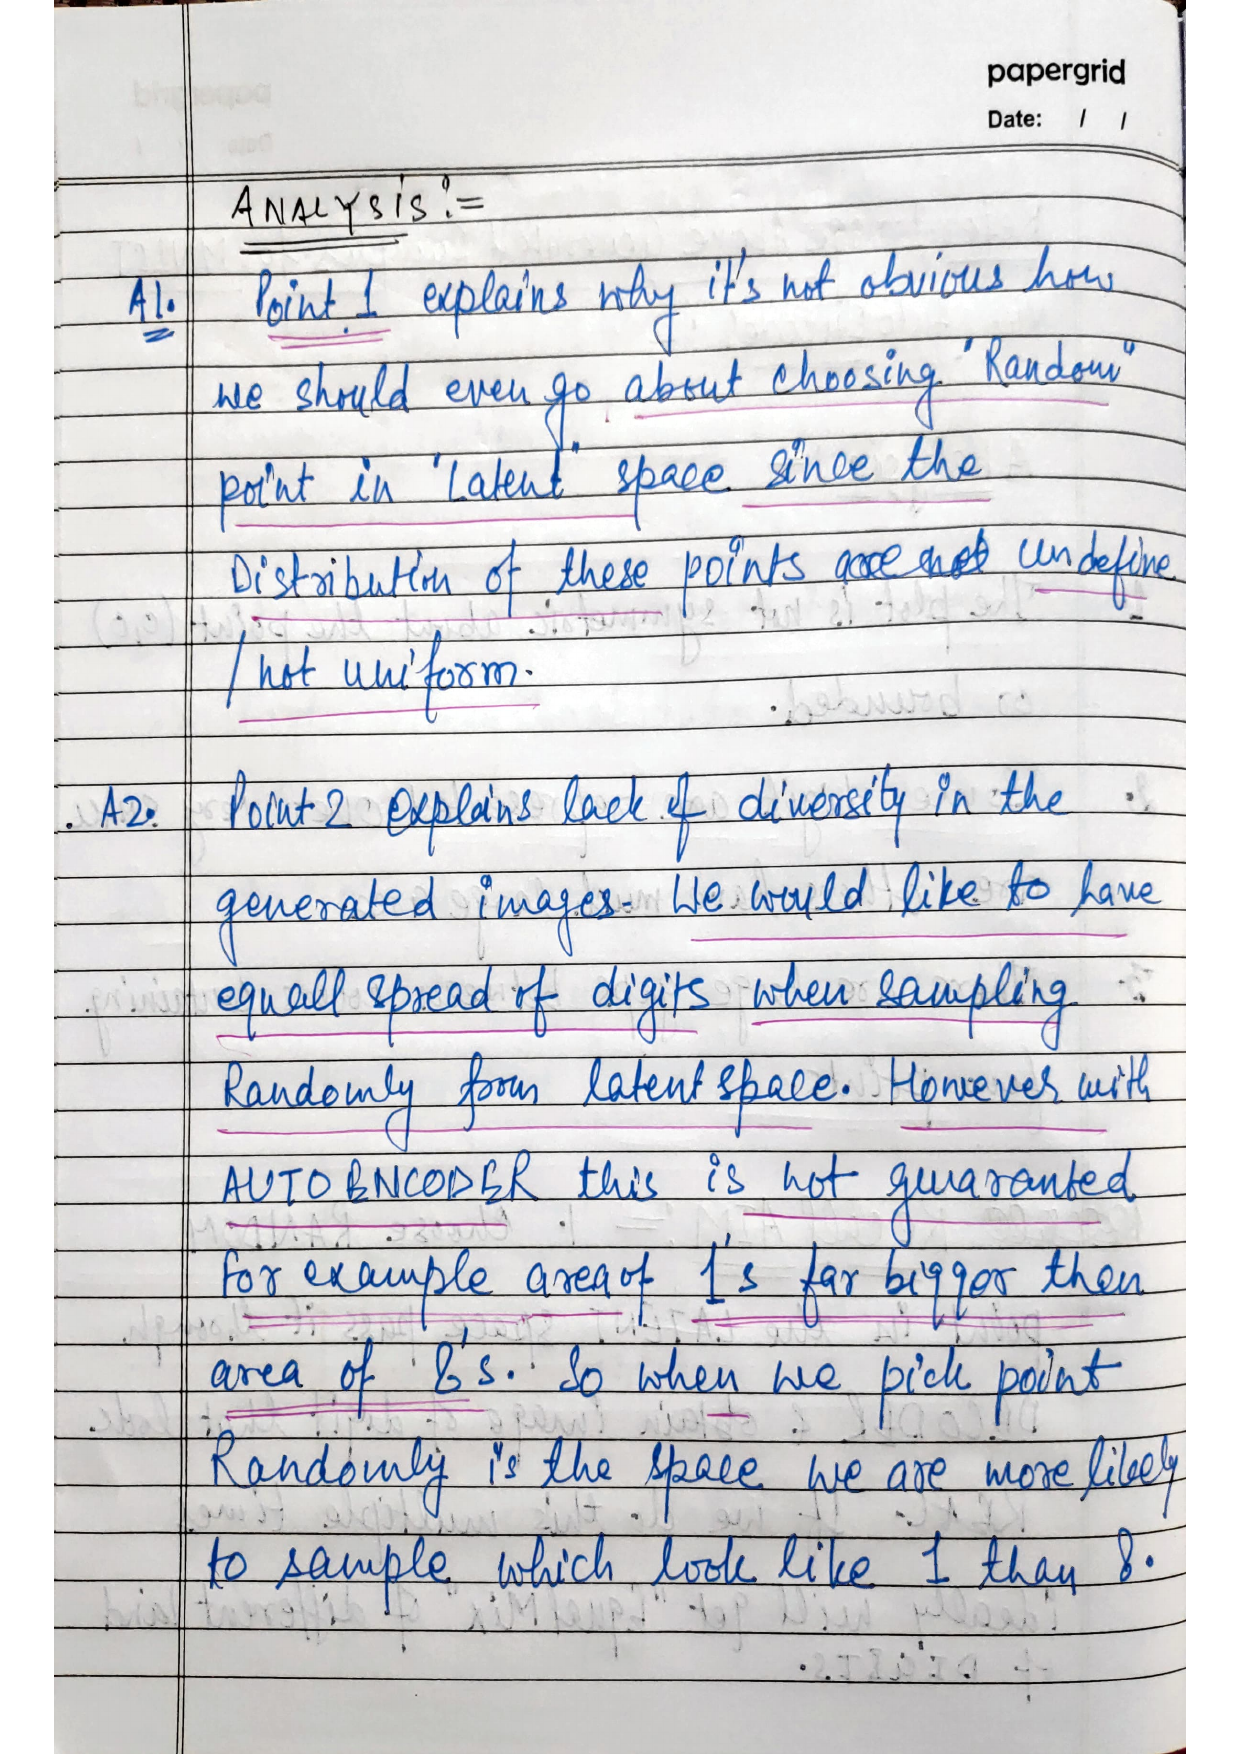 papergrid
Date: / /
ANALYSIS:=
A1. Point 1 explains why it's not obvious how
we should even go about choosing "Random"
point in "Latent" space since the
Distribution of these points undefine
/ not uniform.
A2. Point 2 explains lack of diversity in the
generated images. We would like to have
equall spread of digits when sampling
Randomly from latent space. However with
AUTOENCODER this is not gwaranted
for example area of 1's far bigger then
area of 8's. So when we pick point
Randomly is the space we are more likely
to sample which look like 1 than 8.